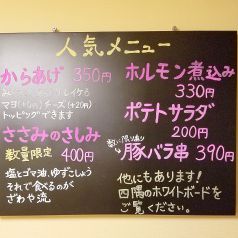 人気メニュー
からあげ 350円
マヨ(+10円)チーズ(+20円)
トッピングできます
ささみのさしみ
数量限定 400円
塩とゴマ油、ゆずこしょう
それで食べるのが
ざわや流
ホルモン煮込み
330円
ポテトサラダ
200円
豚バラ串 390円
他にもあります!
四隅のホワイトボードを
ご覧ください。